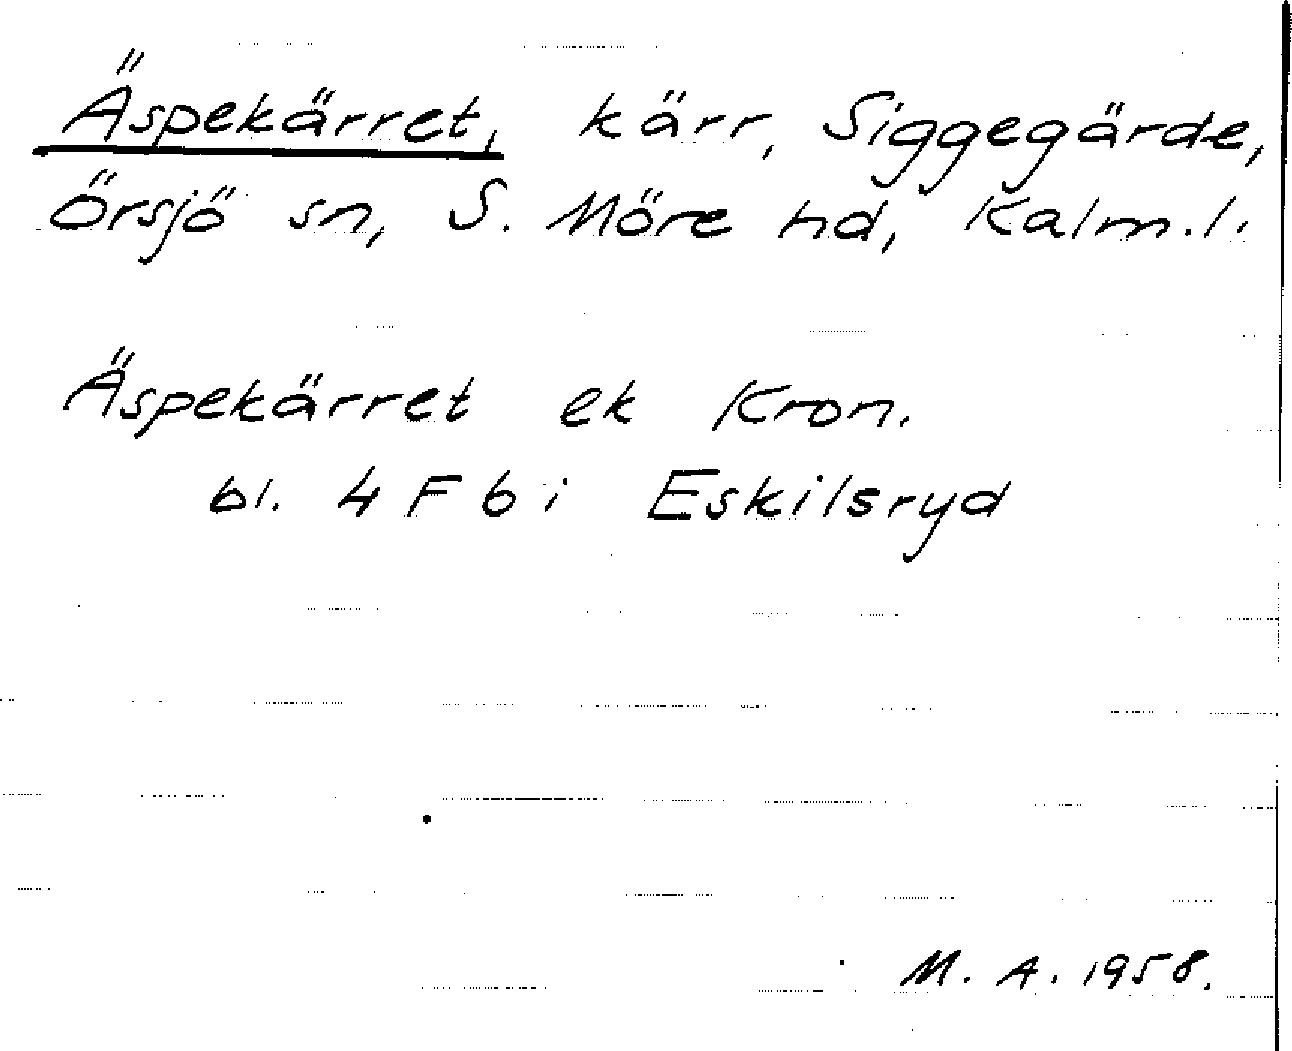 Äspekärret, kärr, Siggegärde,
Örsjö sn, S. Möre hd, Kalm.l.
Äspekärret ek Kron.
bl. 4 F 6 i Eskilsryd
M. A. 1958.